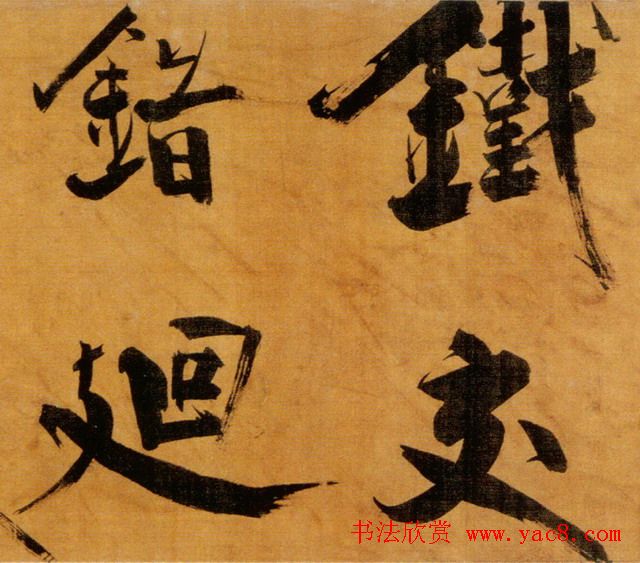 鐵交
錯迴
书法欣赏 www.yac8.com